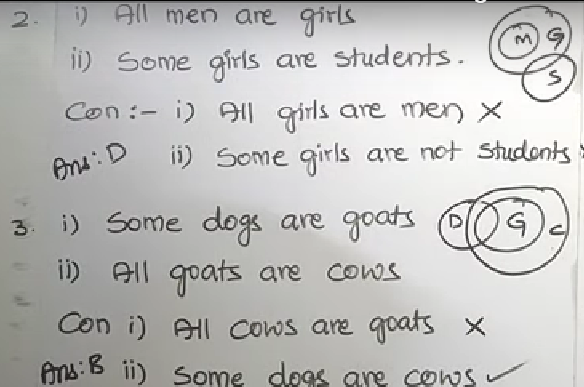 2. i) All men are girls
ii) Some girls are students.
M G
S
Con :- i) All girls are men ×
Ans: D ii) Some girls are not students
3. i) Some dogs are goats
D G C
ii) All goats are cows
Con i) All cows are goats ×
Ans: B ii) Some dogs are cows ✓